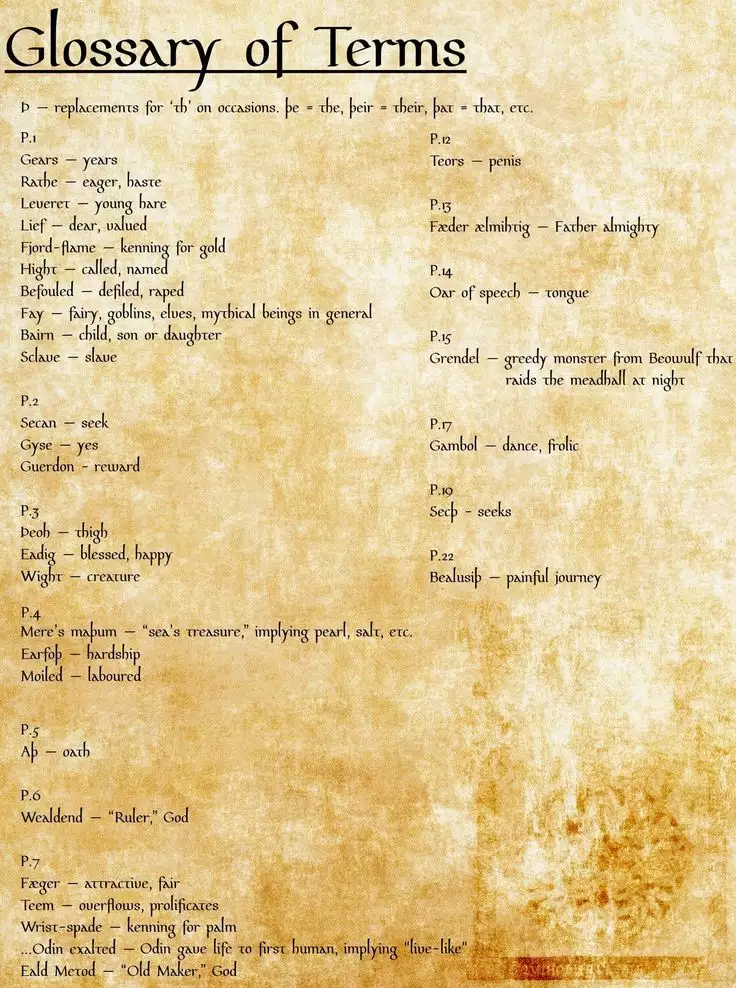 Glossary of Terms
Þ – replacements for 'th' on occasions. þe = the, þeir = their, þat = that, etc.
P.1
Gears – years
Rathe – eager, haste
Leveret – young hare
Lief – dear, valued
Fjord-flame – kenning for gold
Hight – called, named
Befouled – defiled, raped
Fay – fairy, goblins, elves, mythical beings in general
Bairn – child, son or daughter
Sclave – slave
P.2
Secan – seek
Gyse – yes
Guerdon - reward
P.3
Þeoh – thigh
Eadig – blessed, happy
Wight – creature
P.4
Mere's maþum – "sea's treasure," implying pearl, salt, etc.
Earfoþ – hardship
Moiled – laboured
P.5
Aþ – oath
P.6
Wealdend – "Ruler," God
P.7
Fæger – attractive, fair
Teem – overflows, prolificates
Wrist-spade – kenning for palm
...Odin exalted – Odin gave life to first human, implying "live-like"
Eald Metod – "Old Maker," God
P.12
Teors – penis
P.13
Fæder ælmihtig – Father almighty
P.14
Oar of speech – tongue
P.15
Grendel – greedy monster from Beowulf that
raids the meadhall at night
P.17
Gambol – dance, frolic
P.19
Secþ - seeks
P.22
Bealusiþ – painful journey